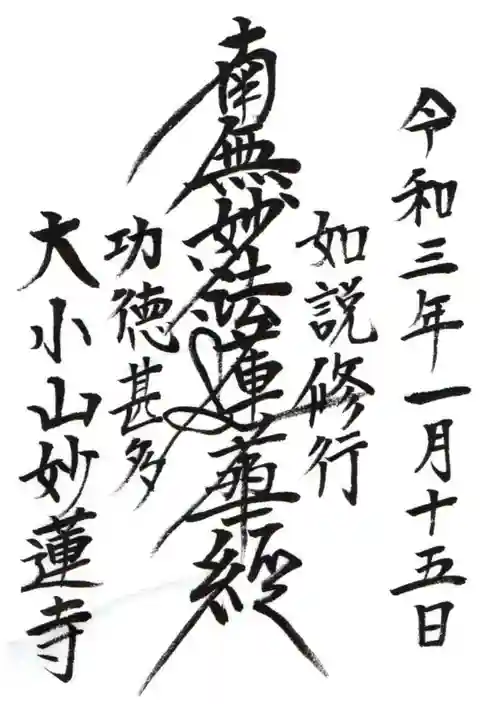 令和三年一月十五日
如説修行
南無妙法蓮華經
功徳甚多
大小山妙蓮寺